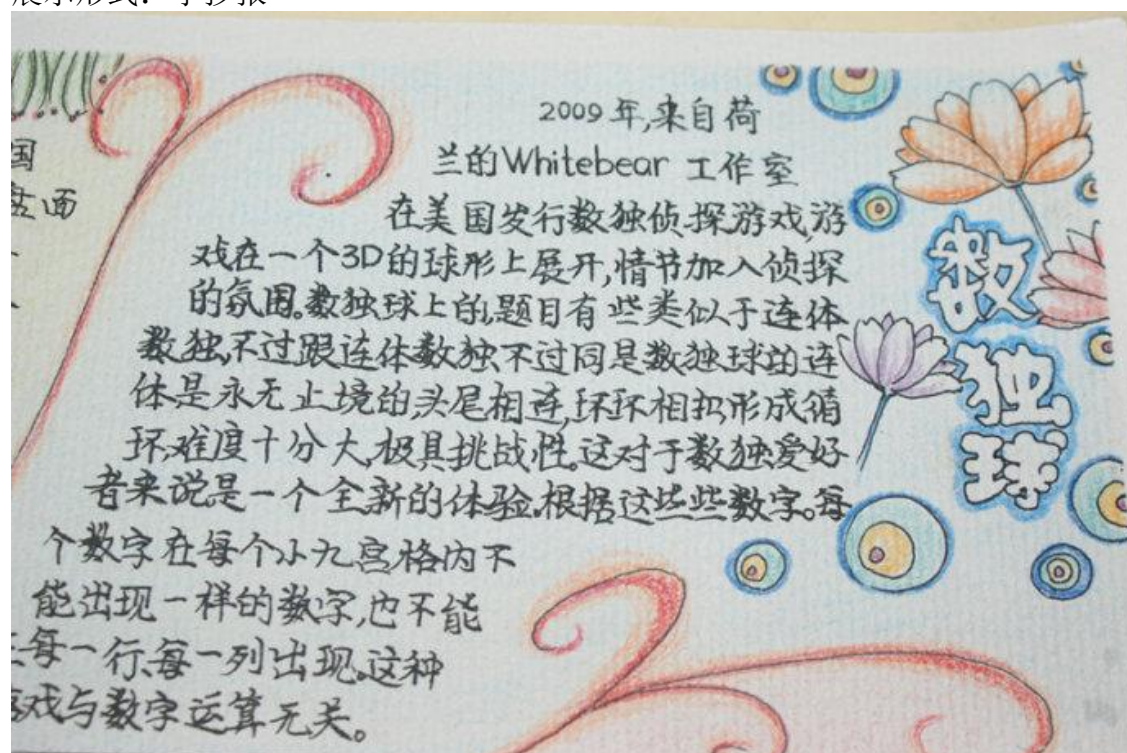 2009年,来自荷
兰的Whitebear 工作室
在美国发行数独侦探游戏,游
戏在一个3D的球形上展开,情节加入侦探
的氛围。数独球上的题目有些类似于连体
数独,不过跟连体数独不过同是数独球的连
体是永无止境的,头尾相连,环环相扣形成循
环,难度十分大,极具挑战性。这对于数独爱好
者来说是一个全新的体验.根据这些些数字。每
个数字在每个小九宫格内不
能出现一样的数字,也不能
每一行,每一列出现.这种
戏与数字运算无关。
数
独
球
国
面